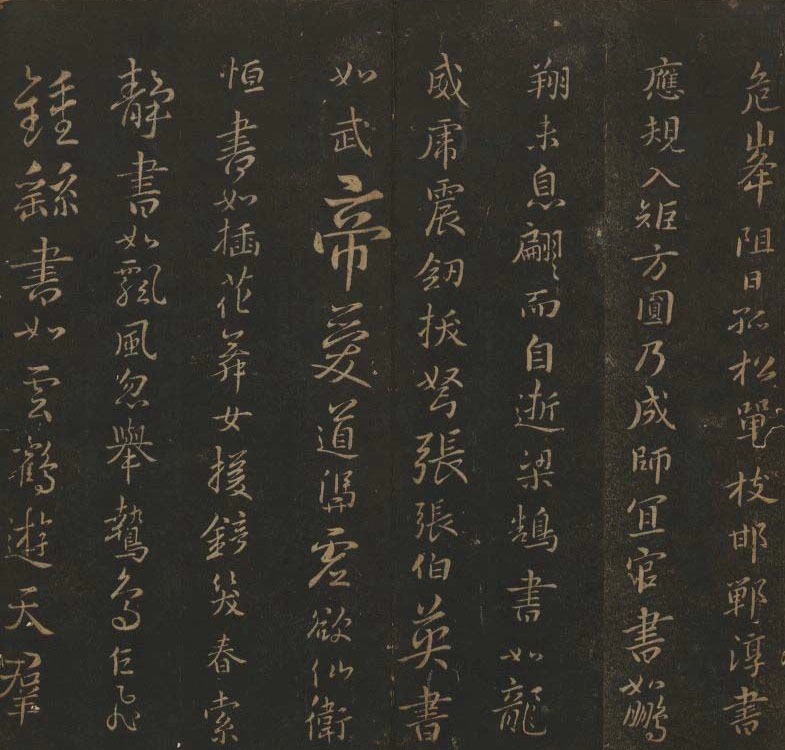 危峯阻日孤松單枝邯鄲淳書
應規入矩方圓乃成師宜官書如鵬
翔未息翩翩而自逝梁鵠書如龍
威虎震劒拔弩張張伯英書
如武帝愛道馮虛欲仙衛
恒書如插花舞女援鏡笑春索
靜書如飄風忽舉鷙鳥乍飛
鍾繇書如雲鶴遊天羣